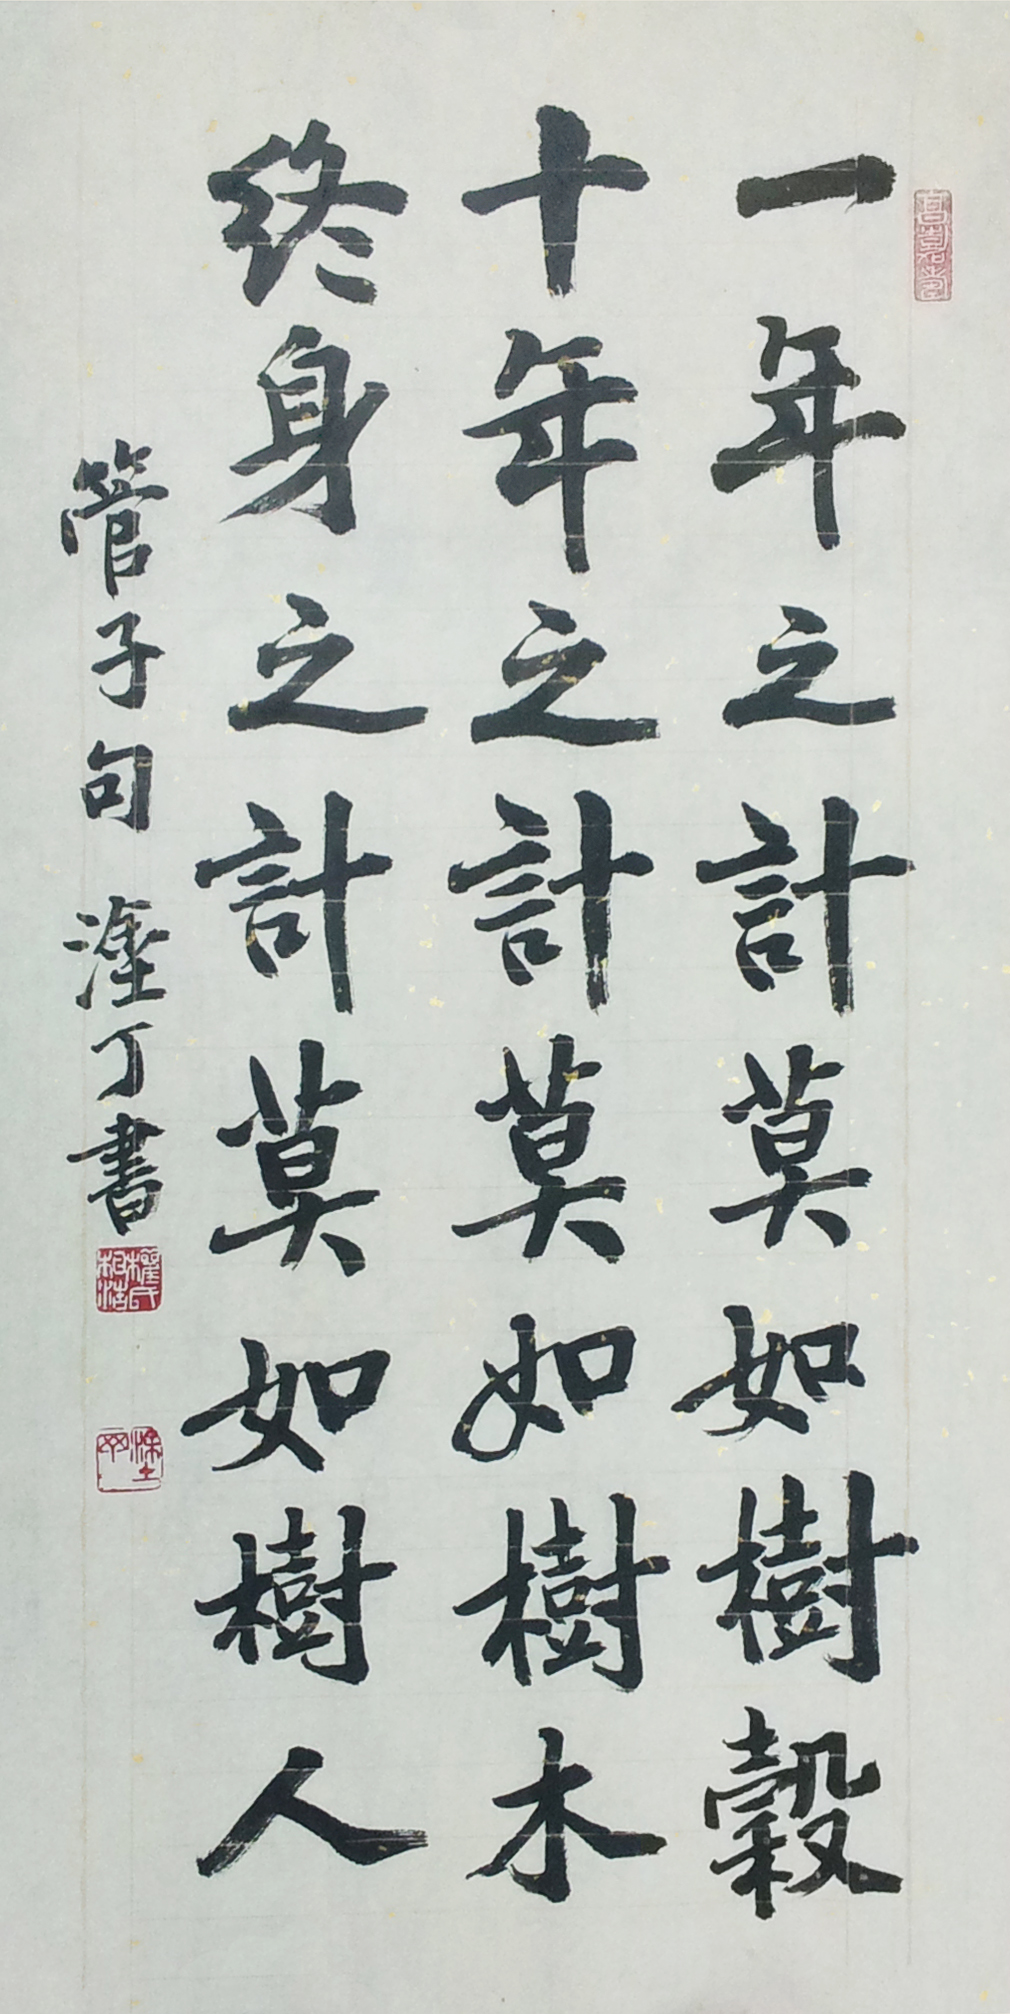 一年之計莫如樹穀
十年之計莫如樹木
終身之計莫如樹人
管子句 丁書